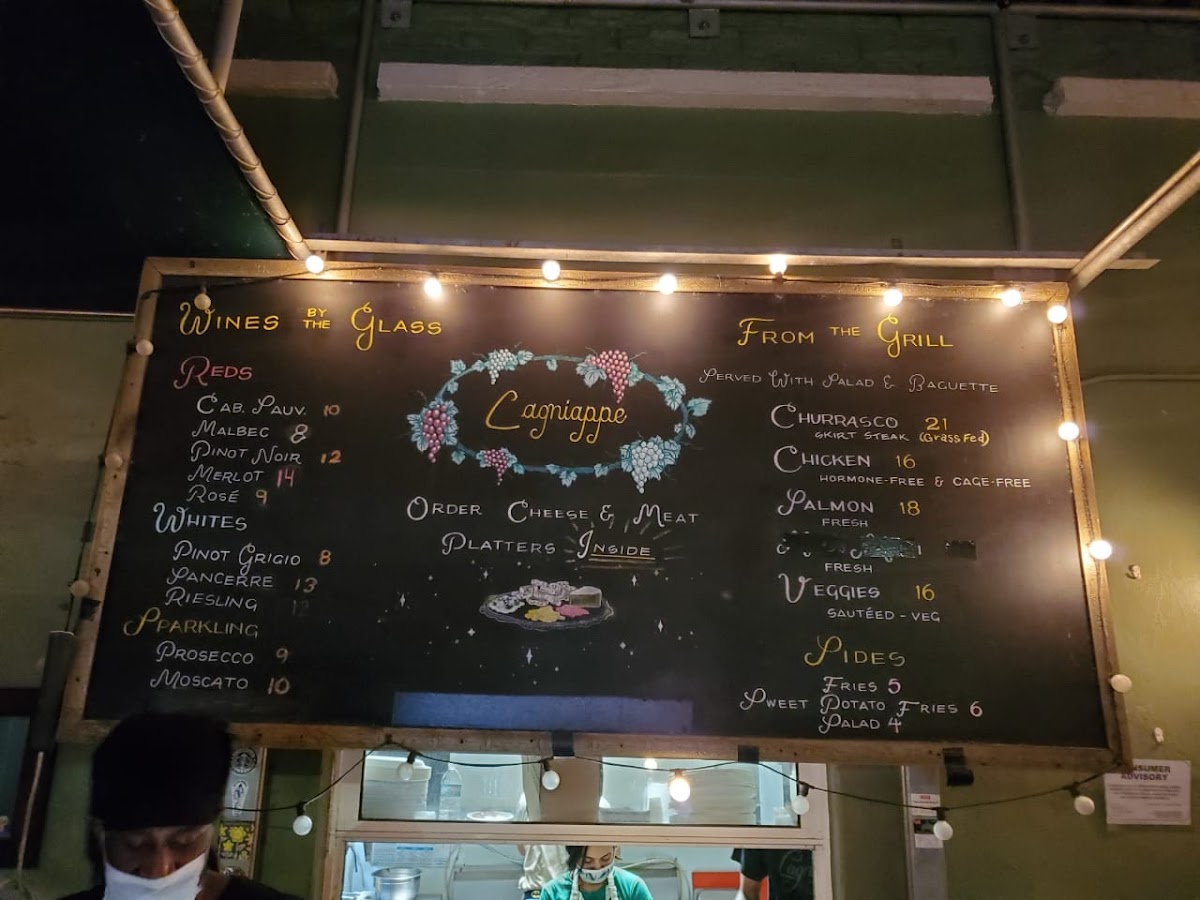 Wines by the Glass
Reds
Cab. Sauv. 10
Malbec 8
Pinot Noir 12
Merlot 14
Rosé 9
Whites
Pinot Grigio 8
Sancerre 13
Riesling 12
Sparkling
Prosecco 9
Moscato 10
Lagniappe
Order Cheese & Meat
Platters Inside
From the Grill
Served With Salad & Baguette
Churrasco 21
Skirt Steak (Grass Fed)
Chicken 16
Hormone-Free & Cage-Free
Salmon 18
Fresh
Fresh
Veggies 16
Sautéed - Veg
Sides
Fries 5
Sweet Potato Fries 6
Salad 4
ADVISORY